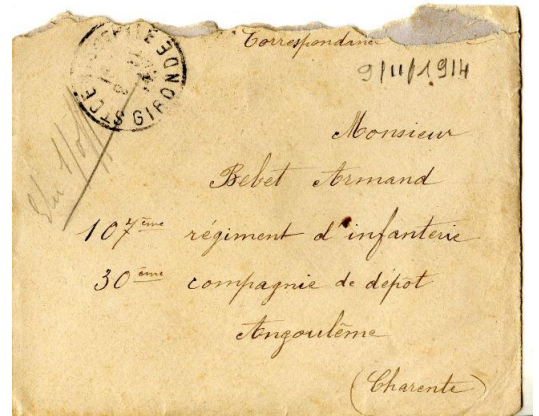 Correspondance
9/11/1914
GIRONDE
Monsieur
Bebet Armand
107ème régiment d'infanterie
30ème compagnie de dépôt
Angoulême
(Charente)